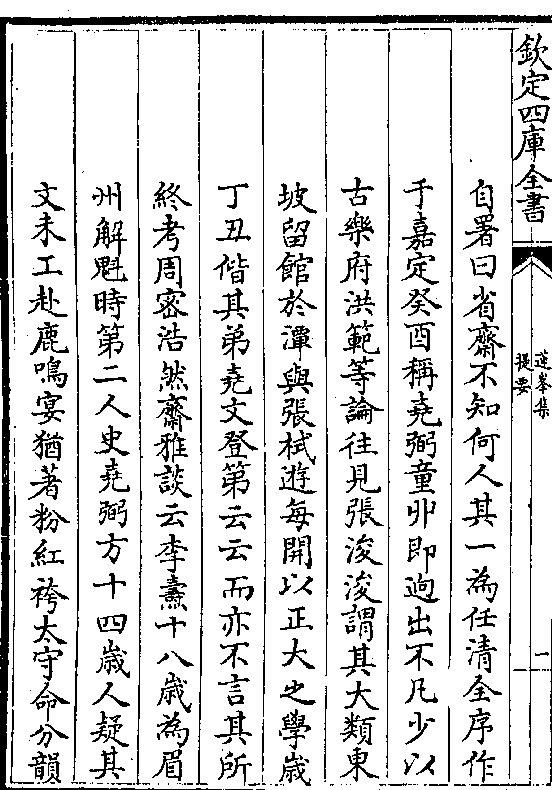 欽定四庫全書
蓮峯集
提要
一
自署曰省齋不知何人其一為任清全序作
于嘉定癸酉稱堯弼童丱即逈出不凡少以
古樂府洪範等論往見張浚浚謂其大類東
坡留館於潭與張栻遊每開以正大之學歳
丁丑偕其弟堯文登第云云而亦不言其所
終考周宻浩然齋雅談云李燾十八歳為眉
州解魁時第二人史堯弼方十四歳人疑其
文未工赴鹿鳴宴猶著粉紅袴太守命分韻